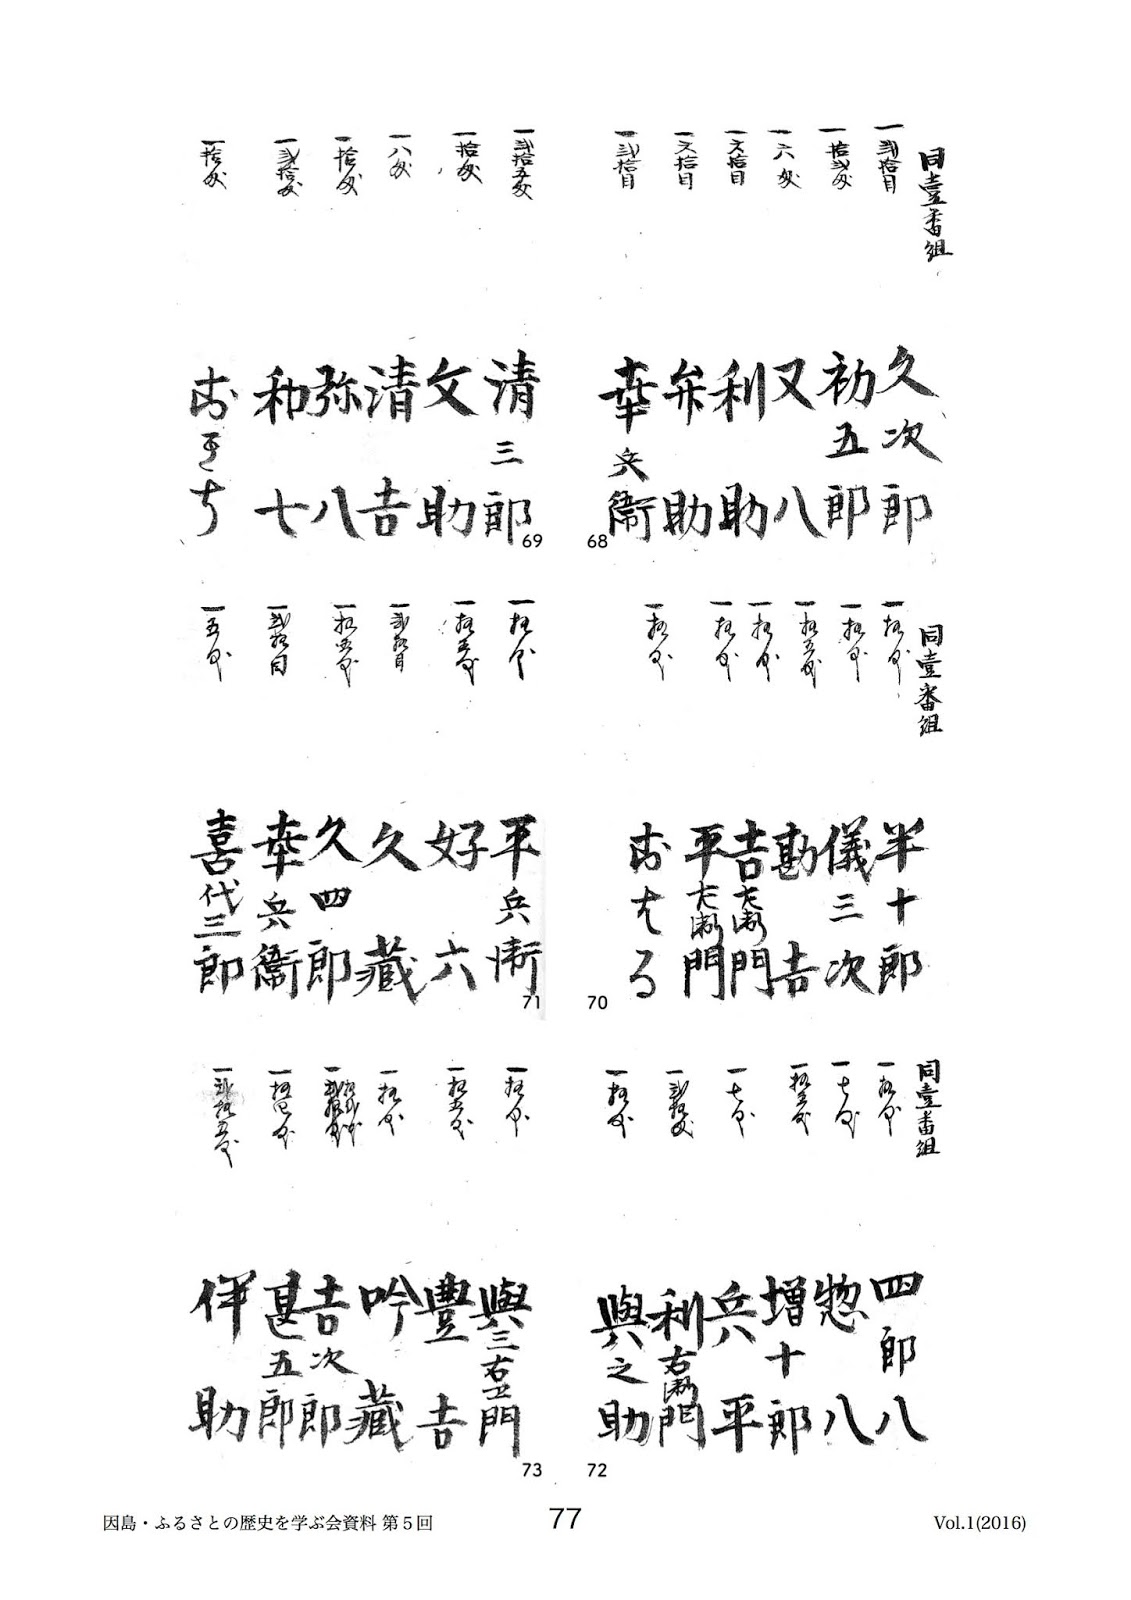 同壹番組
一弐拾目 久次郎
一拾弐匁 初五郎
一六匁 又八
一 拾目 利助
一 拾目 弁助
一弐拾目 幸兵衛
68
一弐拾五匁 清三郎
一拾匁 文助
一八匁 清吉
一拾匁 弥八
一弐拾匁 和七
一拾匁
69
同壹番組
一拾匁 半十郎
一拾匁 儀三次
一拾五匁 勘吉
一拾匁 吉左衛門
一拾匁 平左衛門
一拾匁 おはる
70
一拾匁 平兵衛
一拾五匁 好六
一弐拾目 久藏
一拾五匁 久四郎
一弐拾目 幸兵衛
一五匁 喜代三郎
71
同壹番組
一拾匁 四郎八
一七匁 惣八
一拾五匁 増十郎
一七匁 兵平
一弐拾匁 利右衛門
一拾匁 與之助
72
一拾匁 與三右衛門
一拾五匁 豊吉
一拾匁 吟藏
吉次郎
甚五郎
一弐拾五匁 伊助
73
因島・ふるさとの歴史を学ぶ会資料 第５回
77
Vol.1(2016)